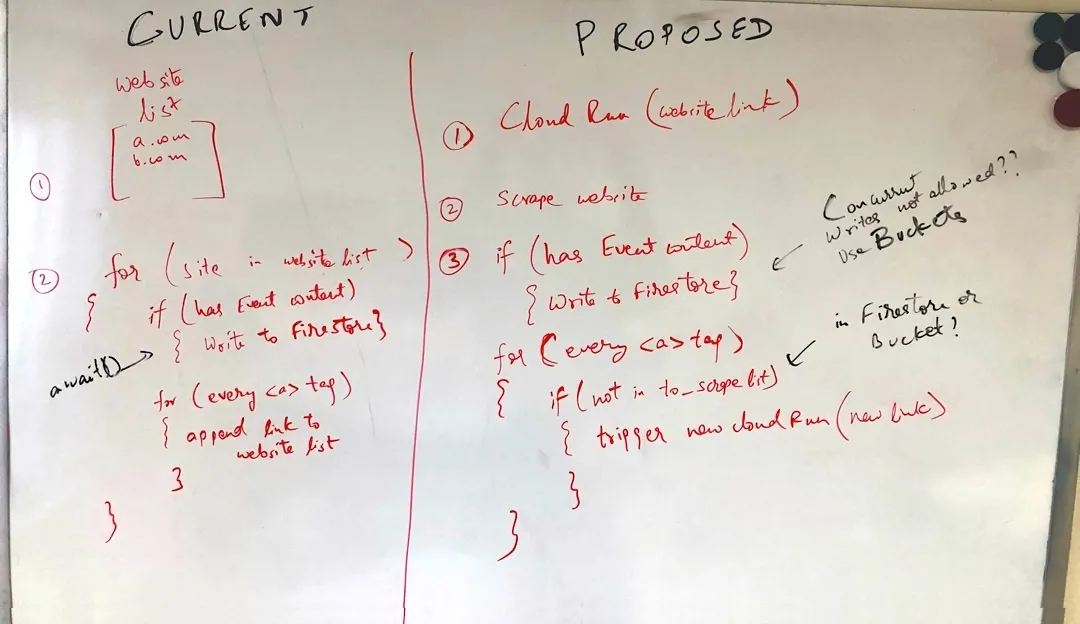 CURRENT
website
list
[ a.com
b.com ]
①
② for (site in website list)
{ if (has Event content)
{ Write to Firestore}
await()
for (every <a> tag)
{ append link to
website list
}
}
PROPOSED
① Cloud Run (website link)
② Scrape website
③ if (has Event content)
{ Write to Firestore}
Concurrent
Writes not allowed??
Use Buckets
for (every <a> tag)
in Firestore or
Bucket?
{ if (not in to_scrape list)
{ trigger new cloud Run (new link)
}
}